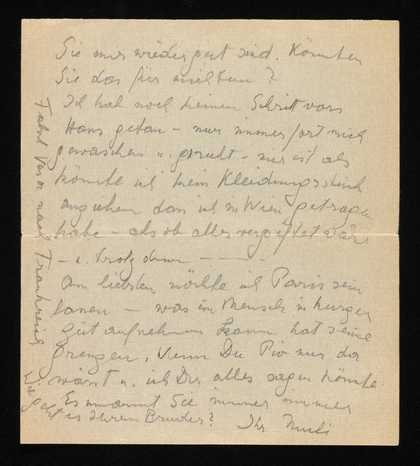 Sie mir wieder gut sind. Könnten
Sie das für mich tun?
Ich hab noch keinen Schritt vors
Haus getan – nur immerfort mich
gewaschen u. geruht – mir ist als
könnte ich kein Kleidungsstück
anziehen das ich in Wien getragen
habe – als ob alles vergiftet wäre
– u. trotzdem –
Am liebsten möchte ich Paris sein
lassen – was ein Mensch in kurzer
Zeit aufnehmen kann hat seine
Grenzen, Wenn Du nur da
wärst u. ich Dir alles sagen könnte
Es umarmt Sie immer immer
Ihr
Wie geht es Ihrem Bruder?
Fahrt nach Frankreich